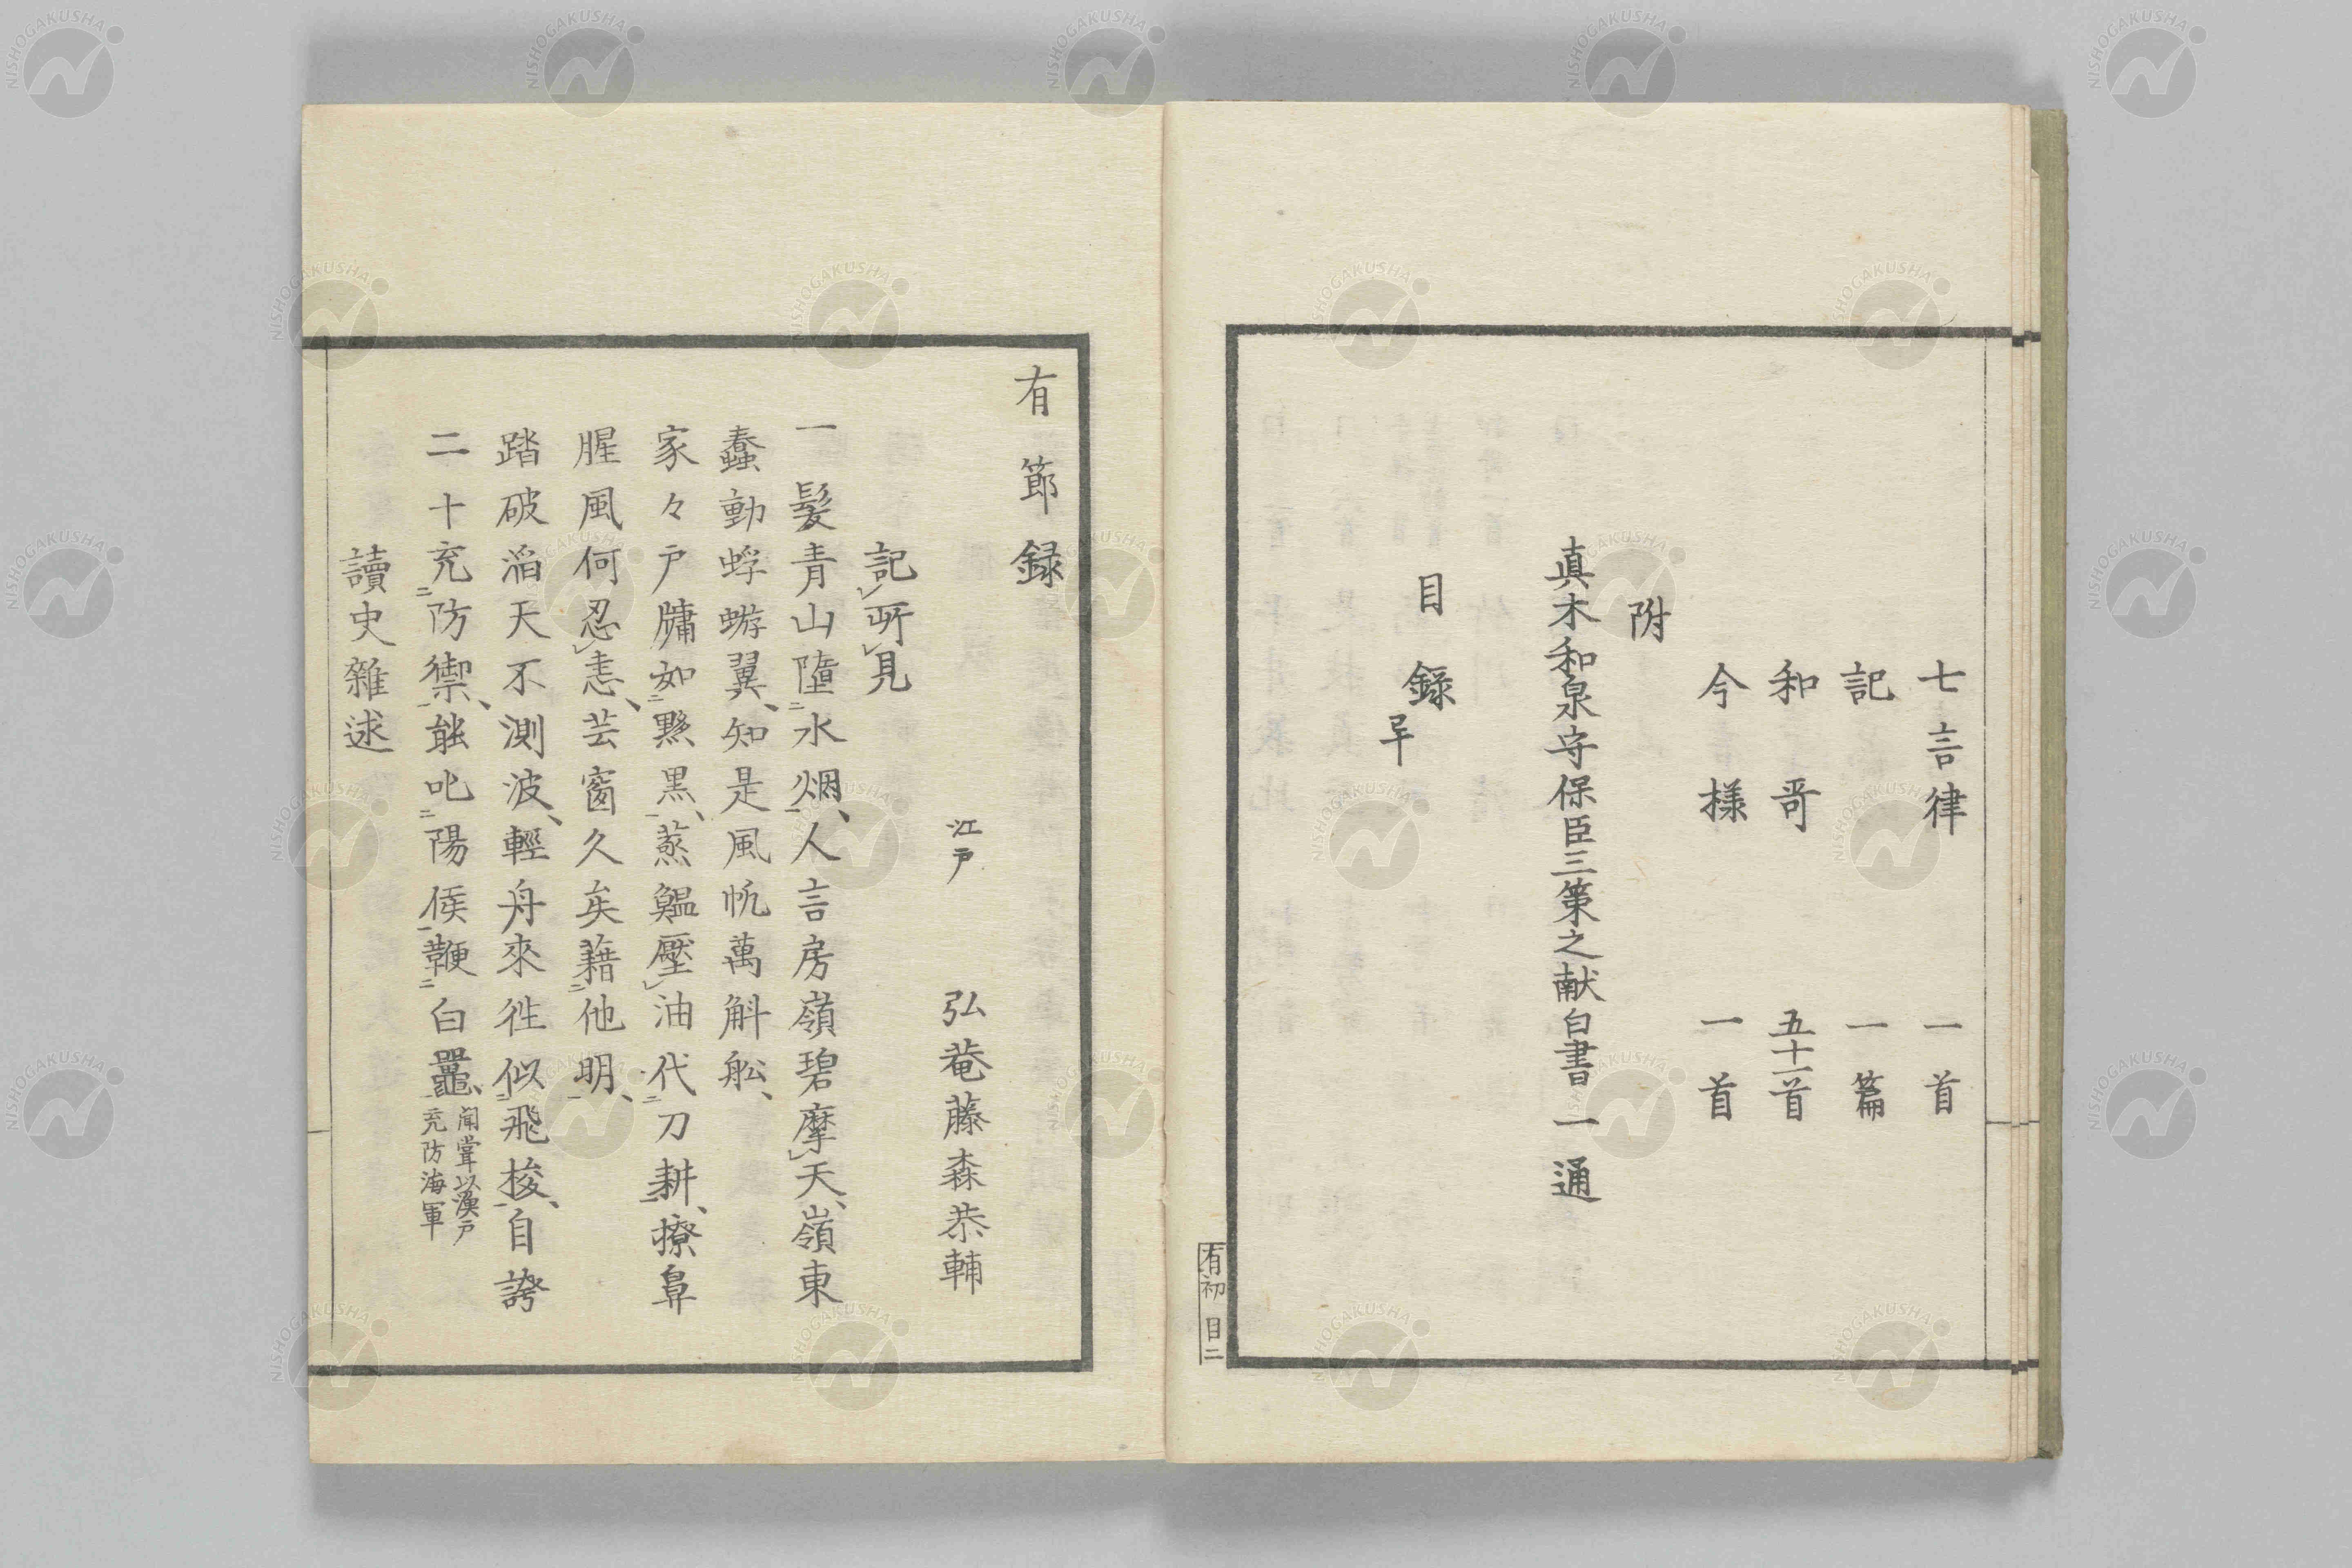 七言律　一首
記　一篇
和哥　五十一首
今様　一首
附
真木和泉守保臣三策之献白書　一通
目録
畢
有初　目二
有節録
江戸　弘菴藤森恭輔
記所見
一髪青山墮水烟、人言房嶺碧摩天、嶺東
蠢動蜉蝣翼、知是風帆萬斛舩、
家々戸牗如黟黒、蒸鰛壓油代刀耕、撩鼻
腥風何忍恚、芸窗久矣藉他明、
踏破滔天不測波、輕舟來往似飛梭、自誇
二十充防禦、能叱陽侯鞭白鼉、
聞嘗以漁戸
充防海軍
讀史雜述
NISHOGAKUSHA